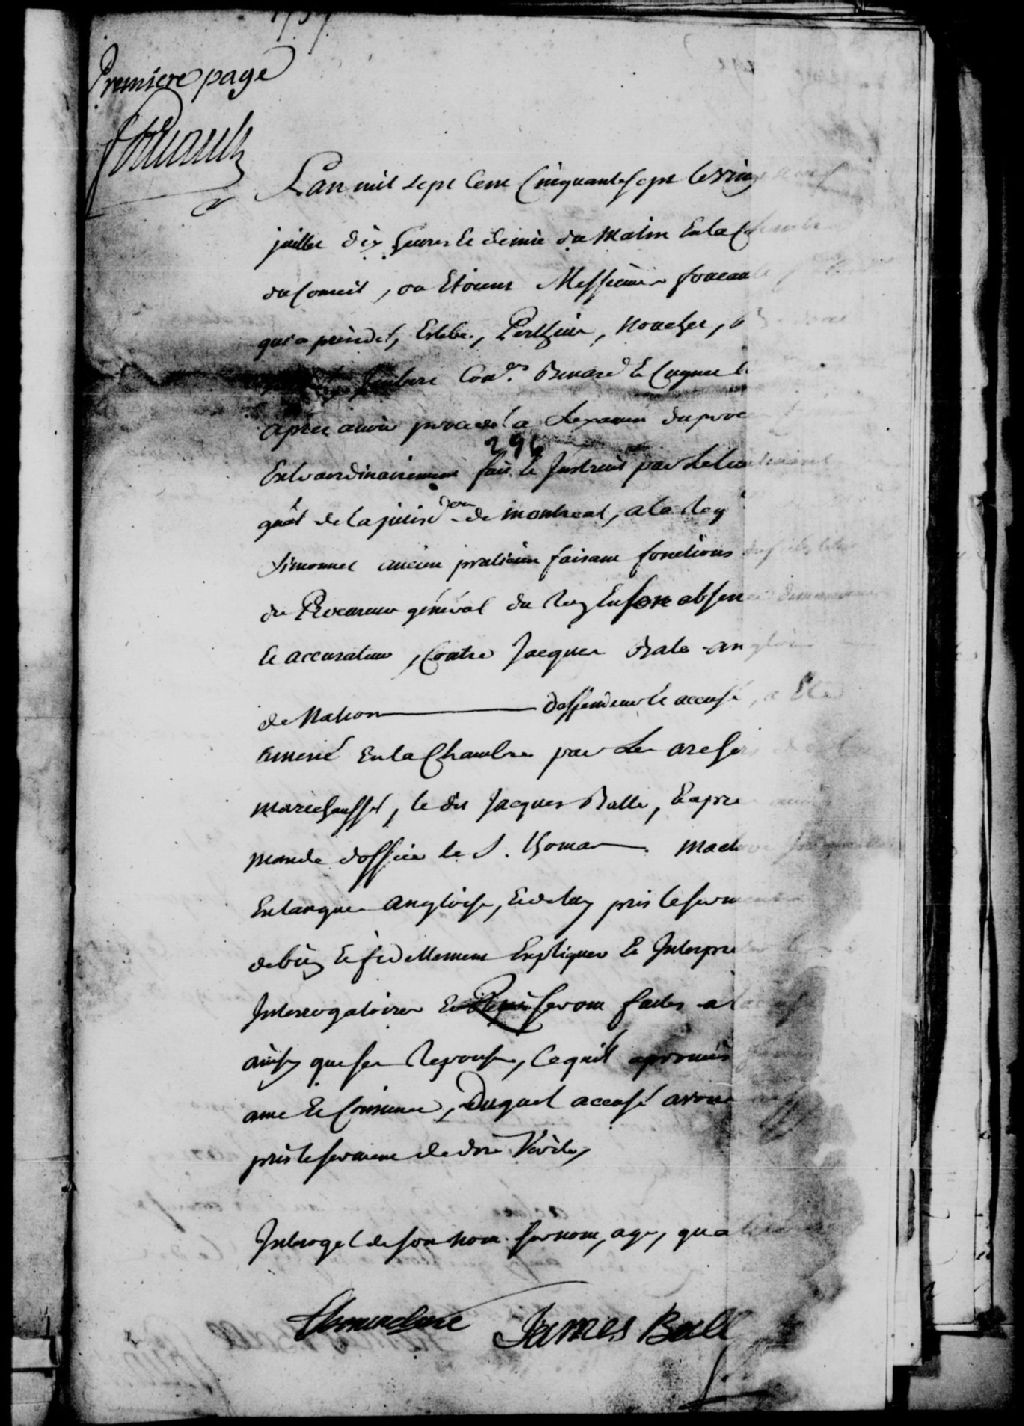 1757
Premiere page
foucault
Lan mil sept Cent Cinquante sept le vingt
juillet dix heures et demie du matin En la Chambre
du Conseil, ou Etoient Messieurs foucault
qui a presidé, Estebe, Perthuis, Noucher,
Gaultier Conrs. Benard et Cugnet
apres avoir procedé a Lexamen du proces
296
Extraordinairement fait et Instruit par Le Lieutenant
gnal de la jurisdon de Montreal, a la Req
Simonnet ancien praticien faisant fonctions
du Procureur général du Roy En son absence demandeur
et accusateur, Contre Jacques Bale anglois
de Nation deffendeur et accusé, a Eté
amené En la Chambre par Les archers
marechaussée, le dit Jacques Balle, Et apres
mandé doffice le S. Thomas
En langue angloise, et de luy pris le serment
de bien et fidellement Expliquer et Interpreter
Interrogatoires Et qui seront faites a laccusé
ainsy que ses Reponses, Ce quil a promis
ame et Conscience, Duquel accusé avons
pris le serment de dire Verité,
Interogé de son nom surnom, age, qualité
James Ball